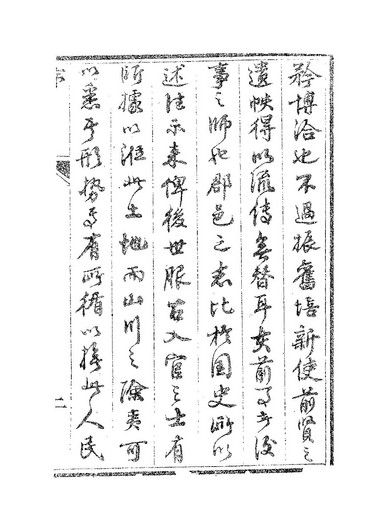 矜博洽也不過振舊培新使前賢之
遺帙得以流傳無替耳夫前事者後
事之師也郡邑之志比於國史所以
述往示來俾後世服古入官之士有
所據以此土地而山川之險夷可
以悉乎形勢焉有所循以此人民
二